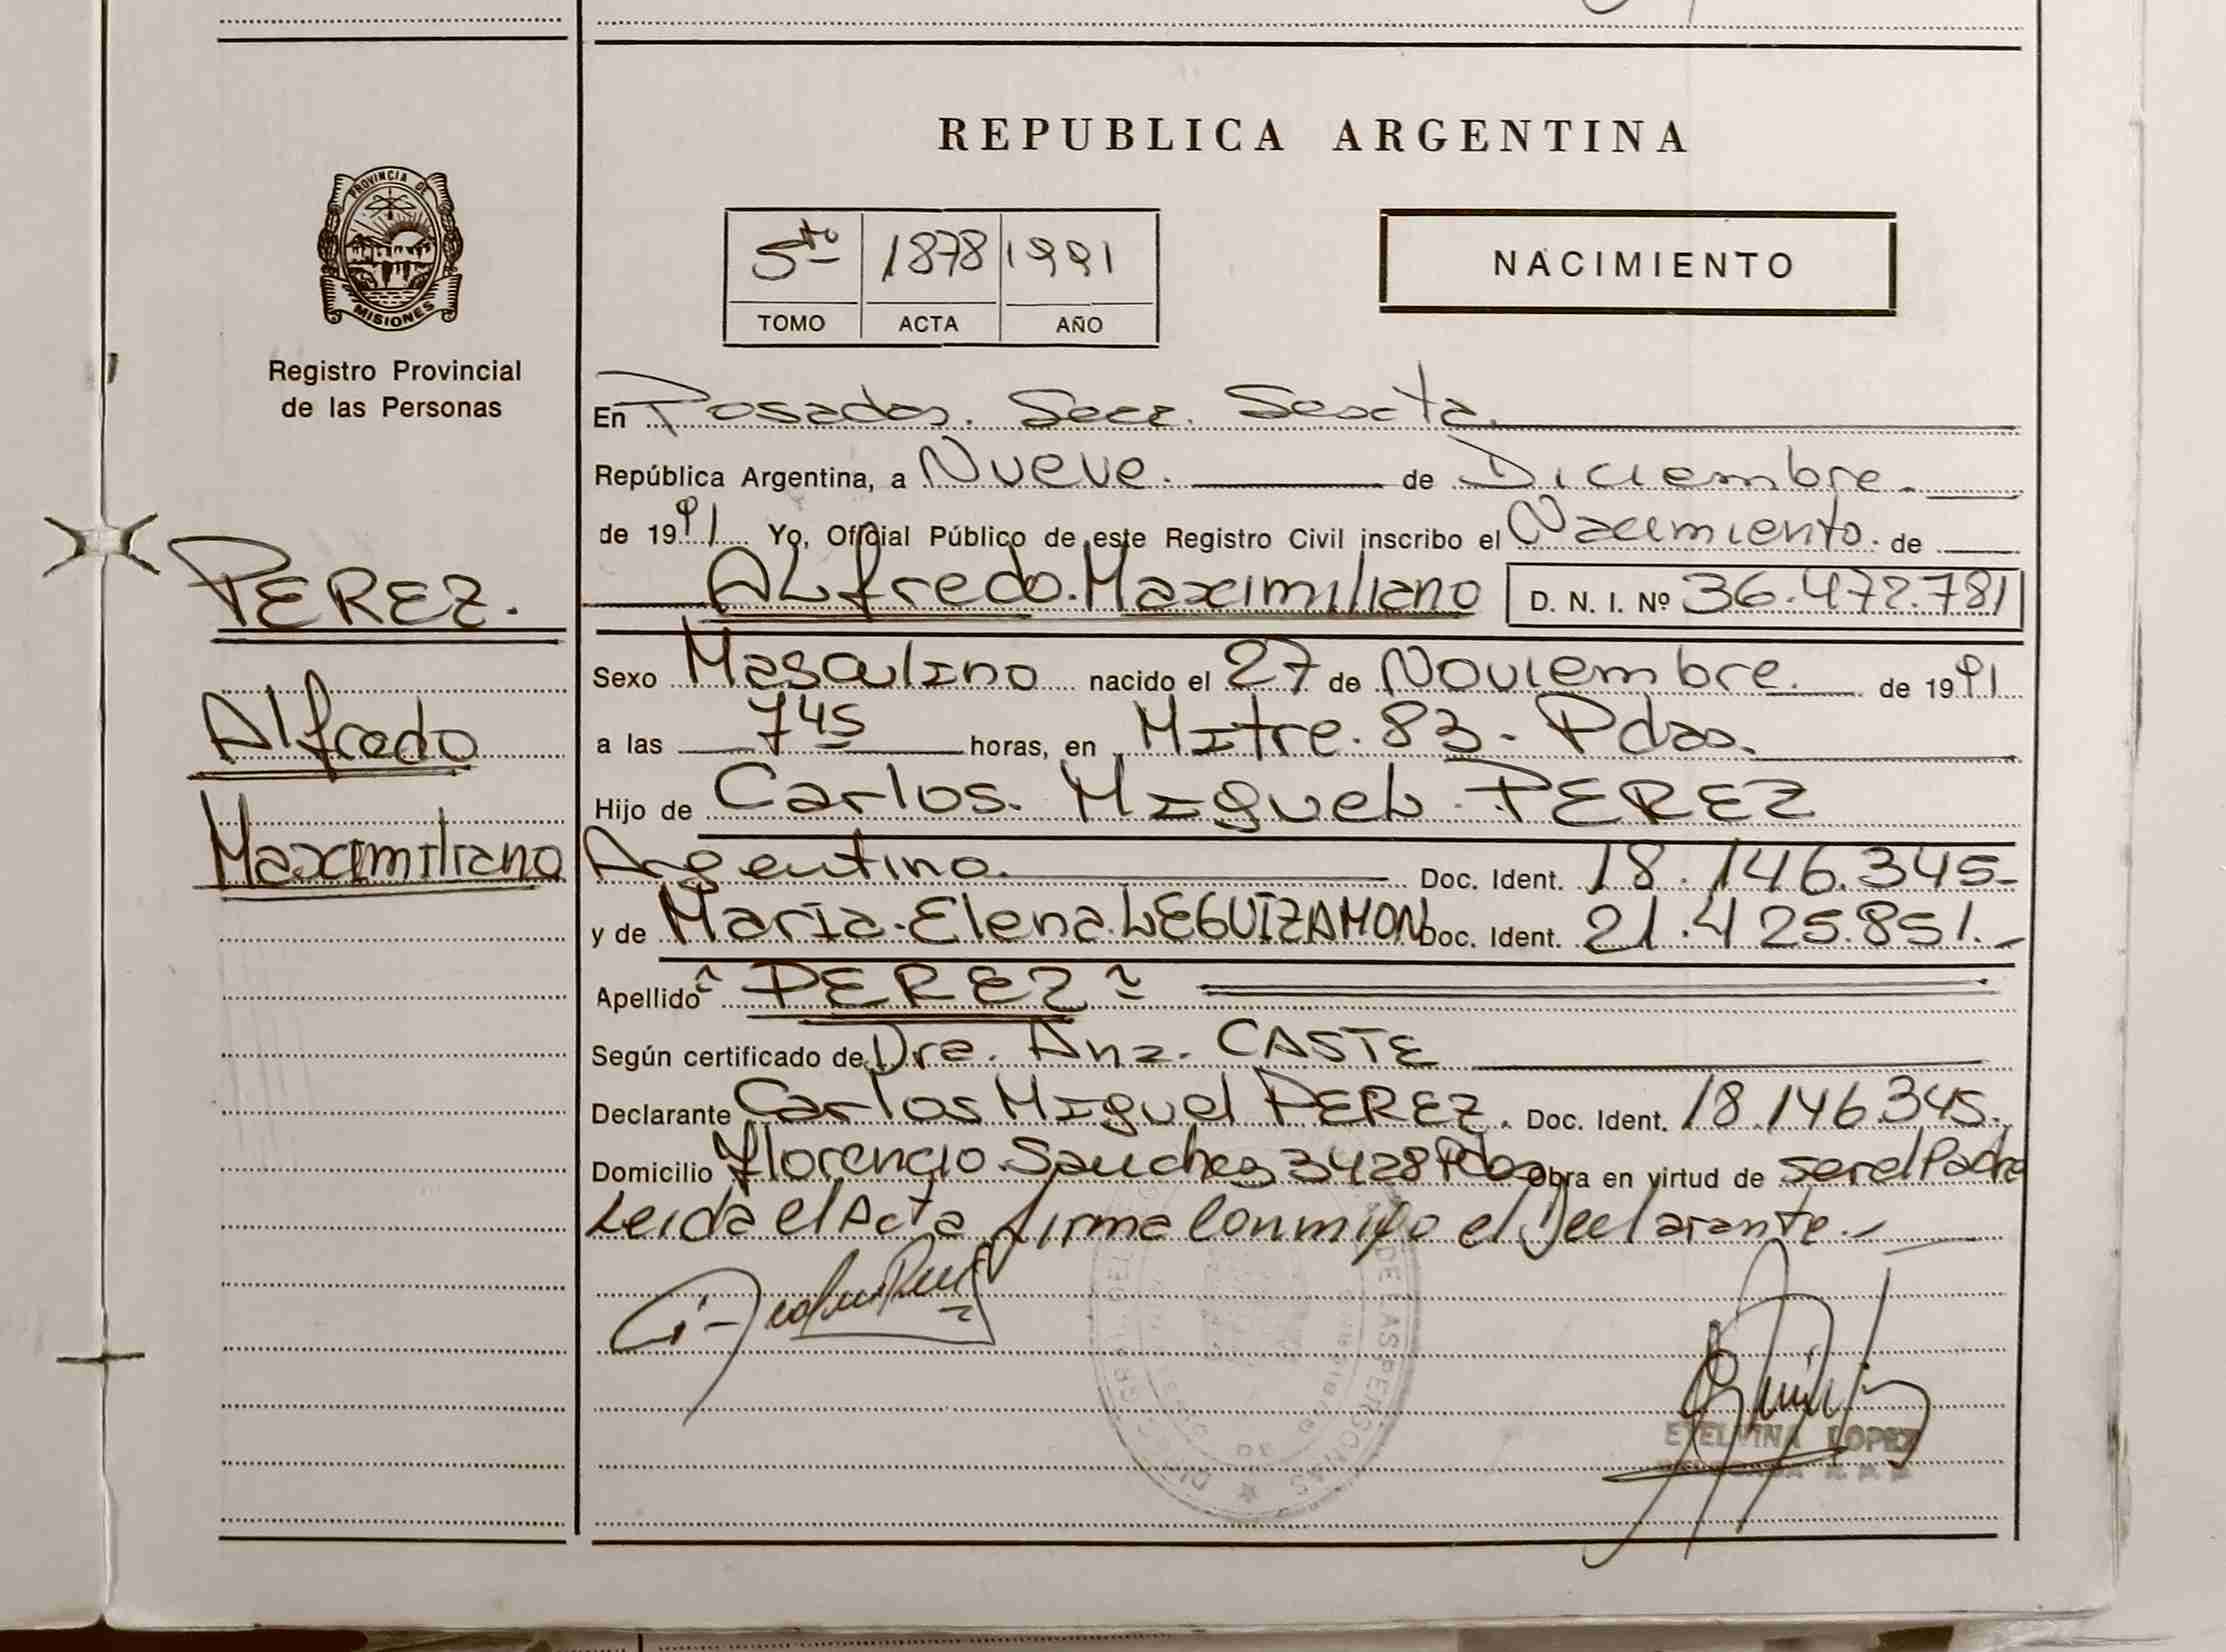 REPUBLICA ARGENTINA
PROVINCIA DE
MISIONES
Registro Provincial
de las Personas
5to 1878 1991
TOMO ACTA AÑO
NACIMIENTO
PEREZ.
Alfredo
Maximiliano
En Posadas. Secc. Sexta.
República Argentina, a Nueve. de Diciembre.
de 1991 Yo, Oficial Público de este Registro Civil inscribo el Nacimiento. de
ALfredo. Maximiliano D. N. I. Nº 36.472.781
Sexo Masculino nacido el 27 de Noviembre. de 1991
a las 745 horas, en Mitre. 83 - Pdas.
Hijo de Carlos. Miguel. PEREZ
Argentino. Doc. Ident. 18.146.345-
y de Maria. Elena. LEGUIZAMON Doc. Ident. 21.425.851.-
Apellido " PEREZ "
Según certificado de Dra. Ana. CASTE
Declarante Carlos Miguel PEREZ. Doc. Ident. 18.146.345.
Domicilio Florencio. Sanches 3428 Pdas Obra en virtud de ser el Padre
Leida el Acta firma Conmigo el Declarante.-
DE LAS PERSONAS
EVELVINA LOPEZ